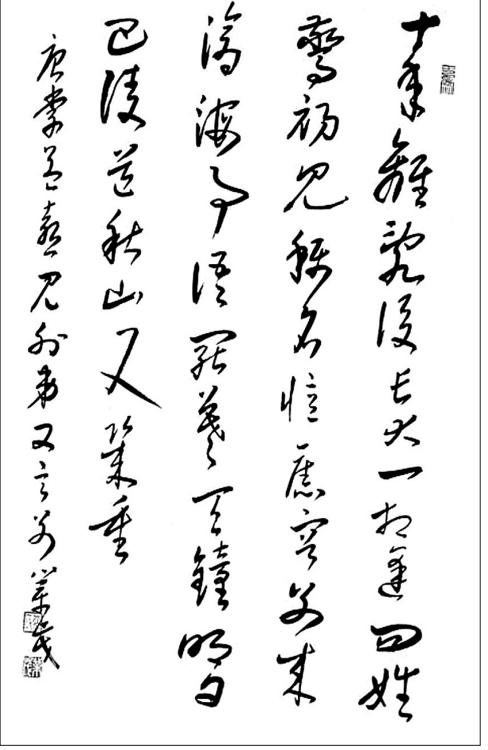 十年離亂後長大一相逢问姓
驚初見稱名憶舊容别来
滄海事语罷暮天鐘明日
巴陵道秋山又幾重
唐李益喜見外弟又言别